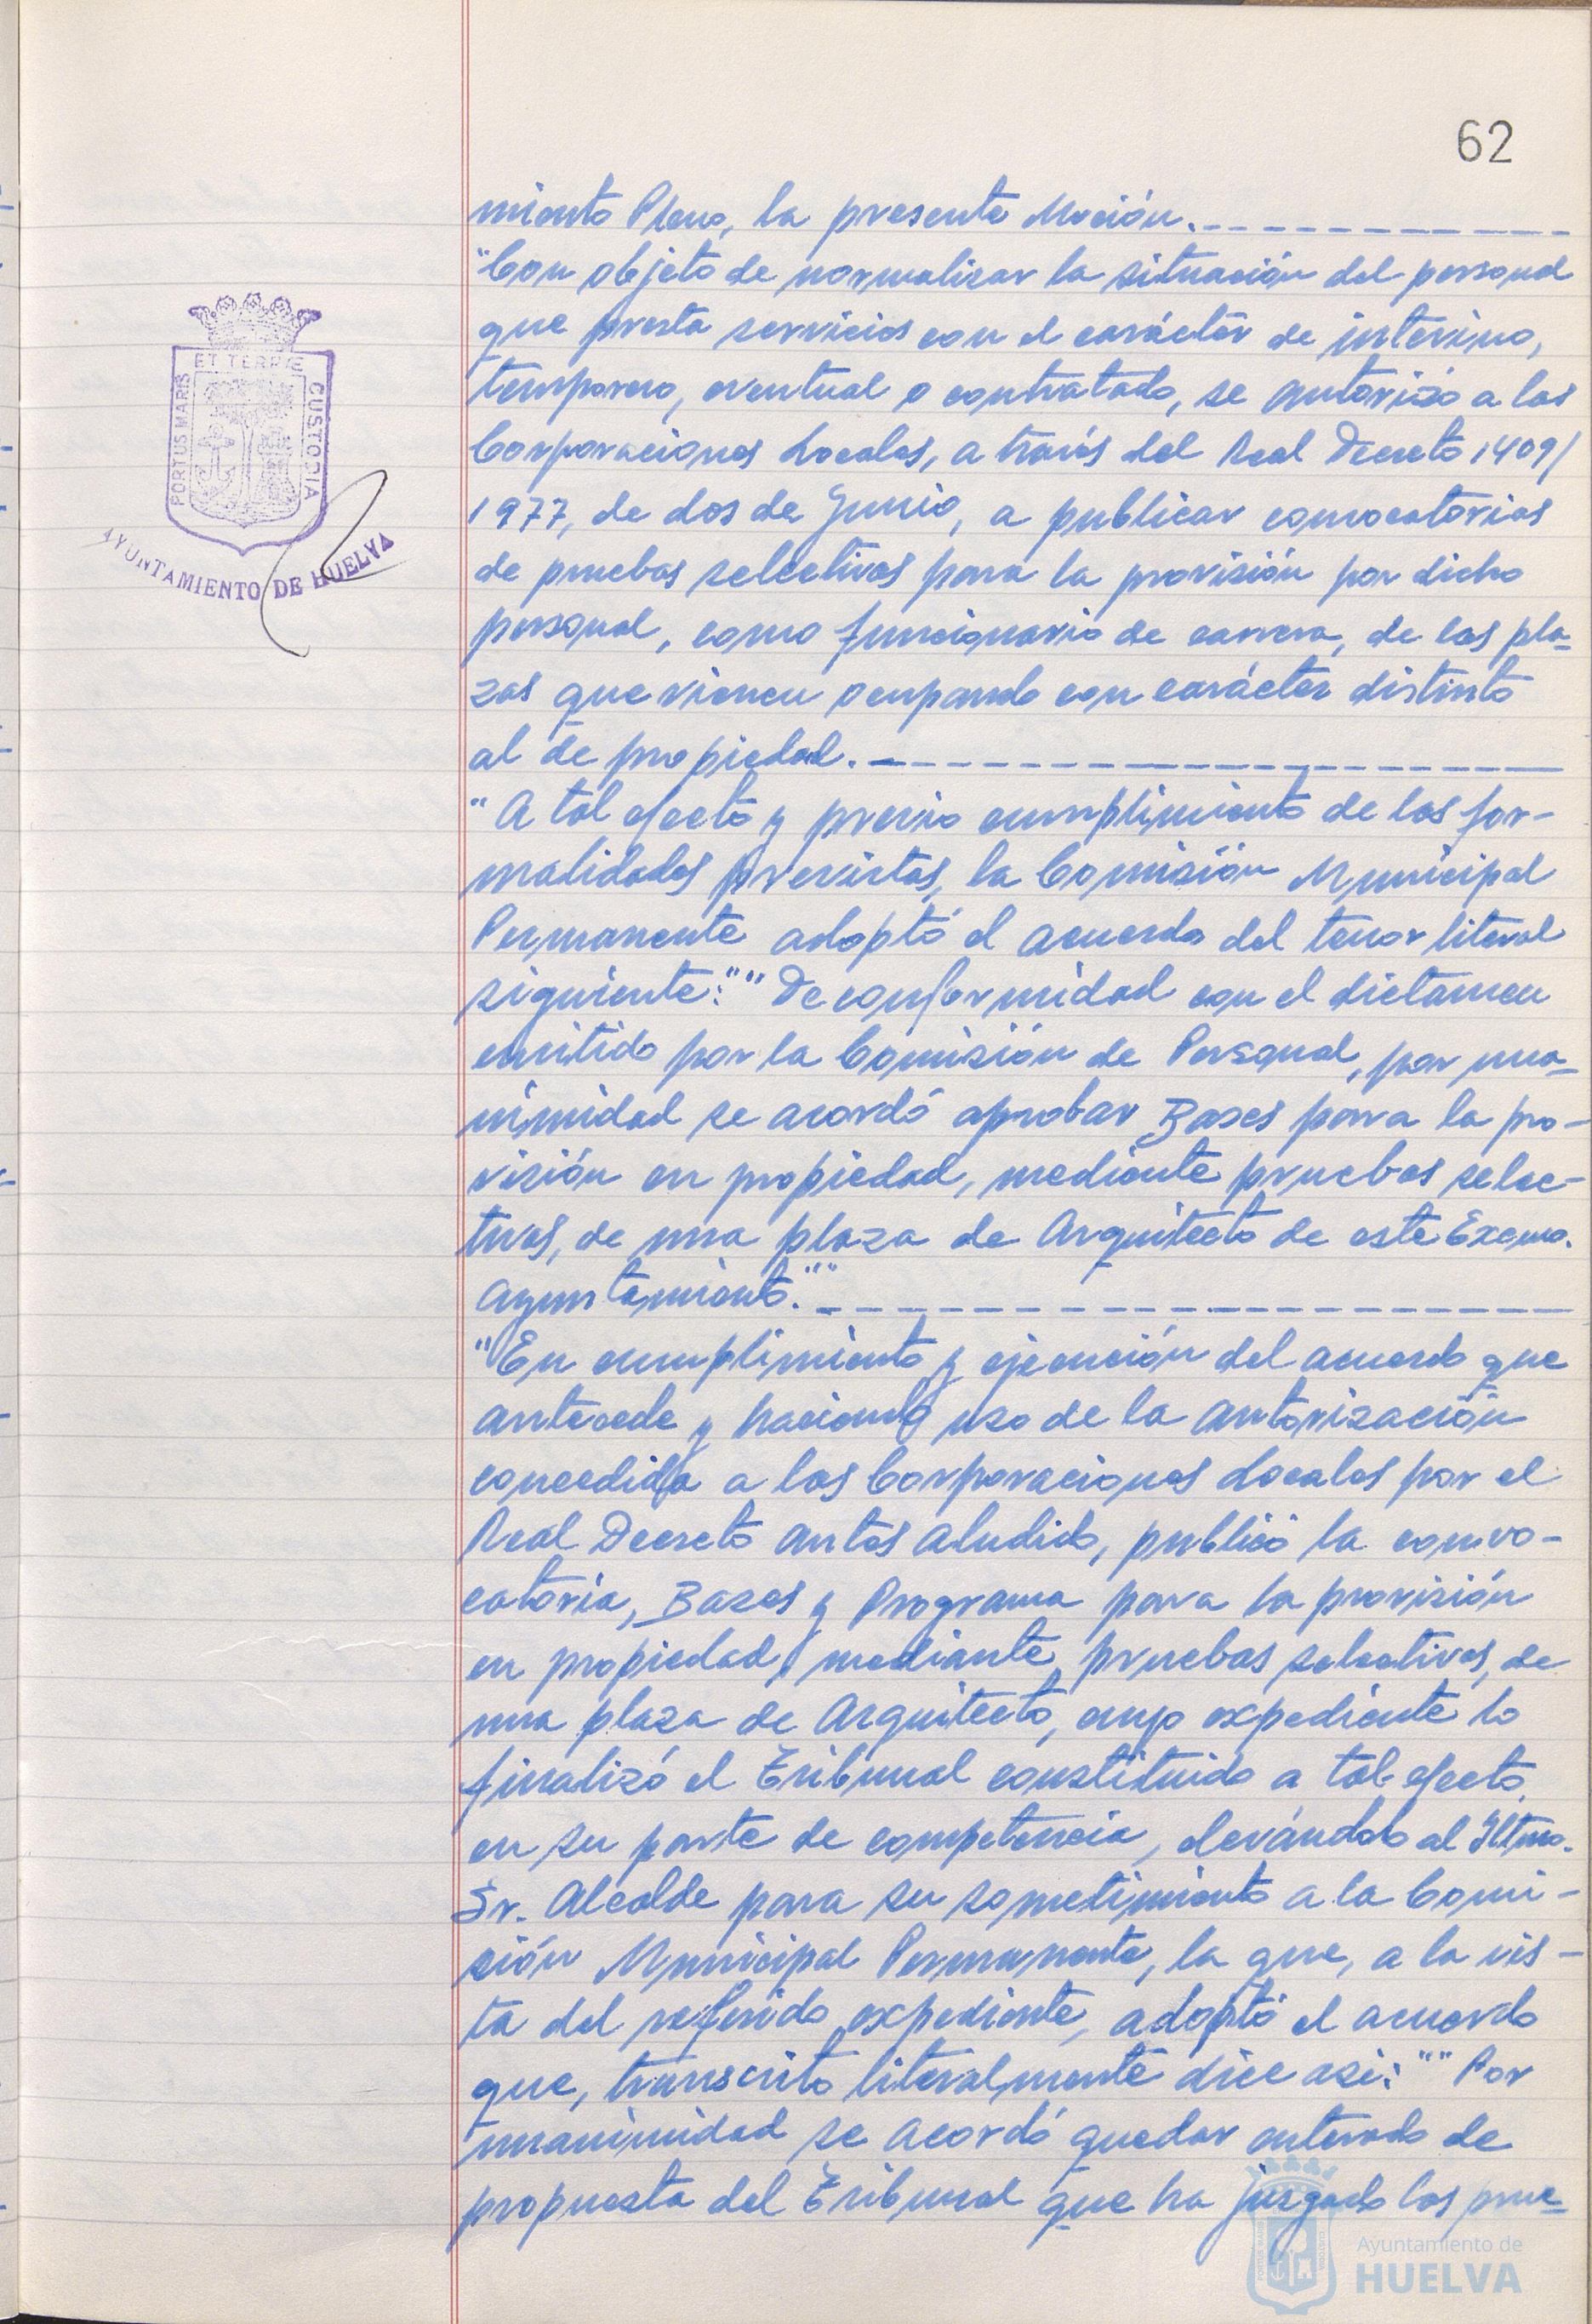 62
miento Pleno, la presente Moción.
"Con objeto de normalizar la situación del personal
que presta servicios con el carácter de interino,
temporero, eventual o contratado, se autorizó a las
Corporaciones Locales, a través del Real Decreto 1409/
1977, de dos de Junio, a publicar convocatorias
de pruebas selectivas para la provisión por dicho
personal, como funcionario de carrera, de las pla-
zas que vienen ocupando con carácter distinto
al de propiedad.
"A tal efecto y previo cumplimiento de las for-
malidades previstas, la Comisión Municipal
Permanente adoptó el acuerdo del tenor literal
siguiente: "" De conformidad con el dictamen
emitido por la Comisión de Personal, por una-
nimidad se acordó aprobar Bases para la pro-
visión en propiedad, mediante pruebas selec-
tivas, de una plaza de Arquitecto de este Excmo.
Ayuntamiento.""
"En cumplimiento y ejecución del acuerdo que
antecede y haciendo uso de la autorización
concedida a las Corporaciones Locales por el
Real Decreto antes aludido, publicó la convo-
catoria, Bases y Programa para la provisión
en propiedad, mediante pruebas selectivas, de
una plaza de Arquitecto, cuyo expediente lo
finalizó el Tribunal constituido a tal efecto,
en su parte de competencia, elevándolo al Iltmo.
Sr. Alcalde para su sometimiento a la Comi-
sión Municipal Permanente, la que, a la vis-
ta del referido expediente, adoptó el acuerdo
que, transcrito literalmente dice asi: "" Por
unanimidad se acordó quedar enterado de
propuesta del Tribunal que ha juzgado las prue-
PORTUS MARIS
ET TERRE
CUSTODIA
AYUNTAMIENTO DE HUELVA
Ayuntamiento de
HUELVA